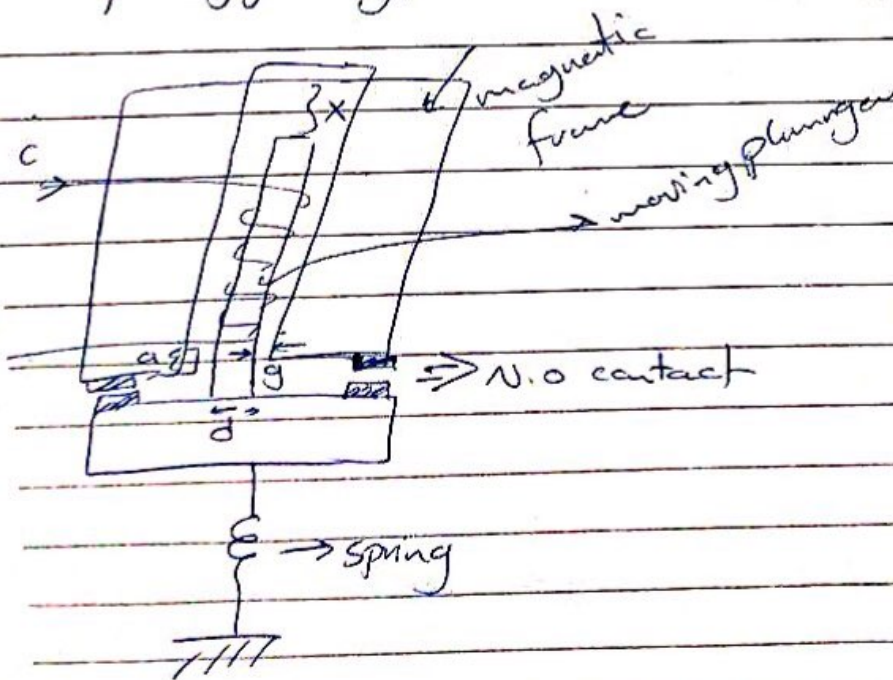 magnatic
frame
} x
c
moving plunger
a
g
=> N.O contact
d
→ spring